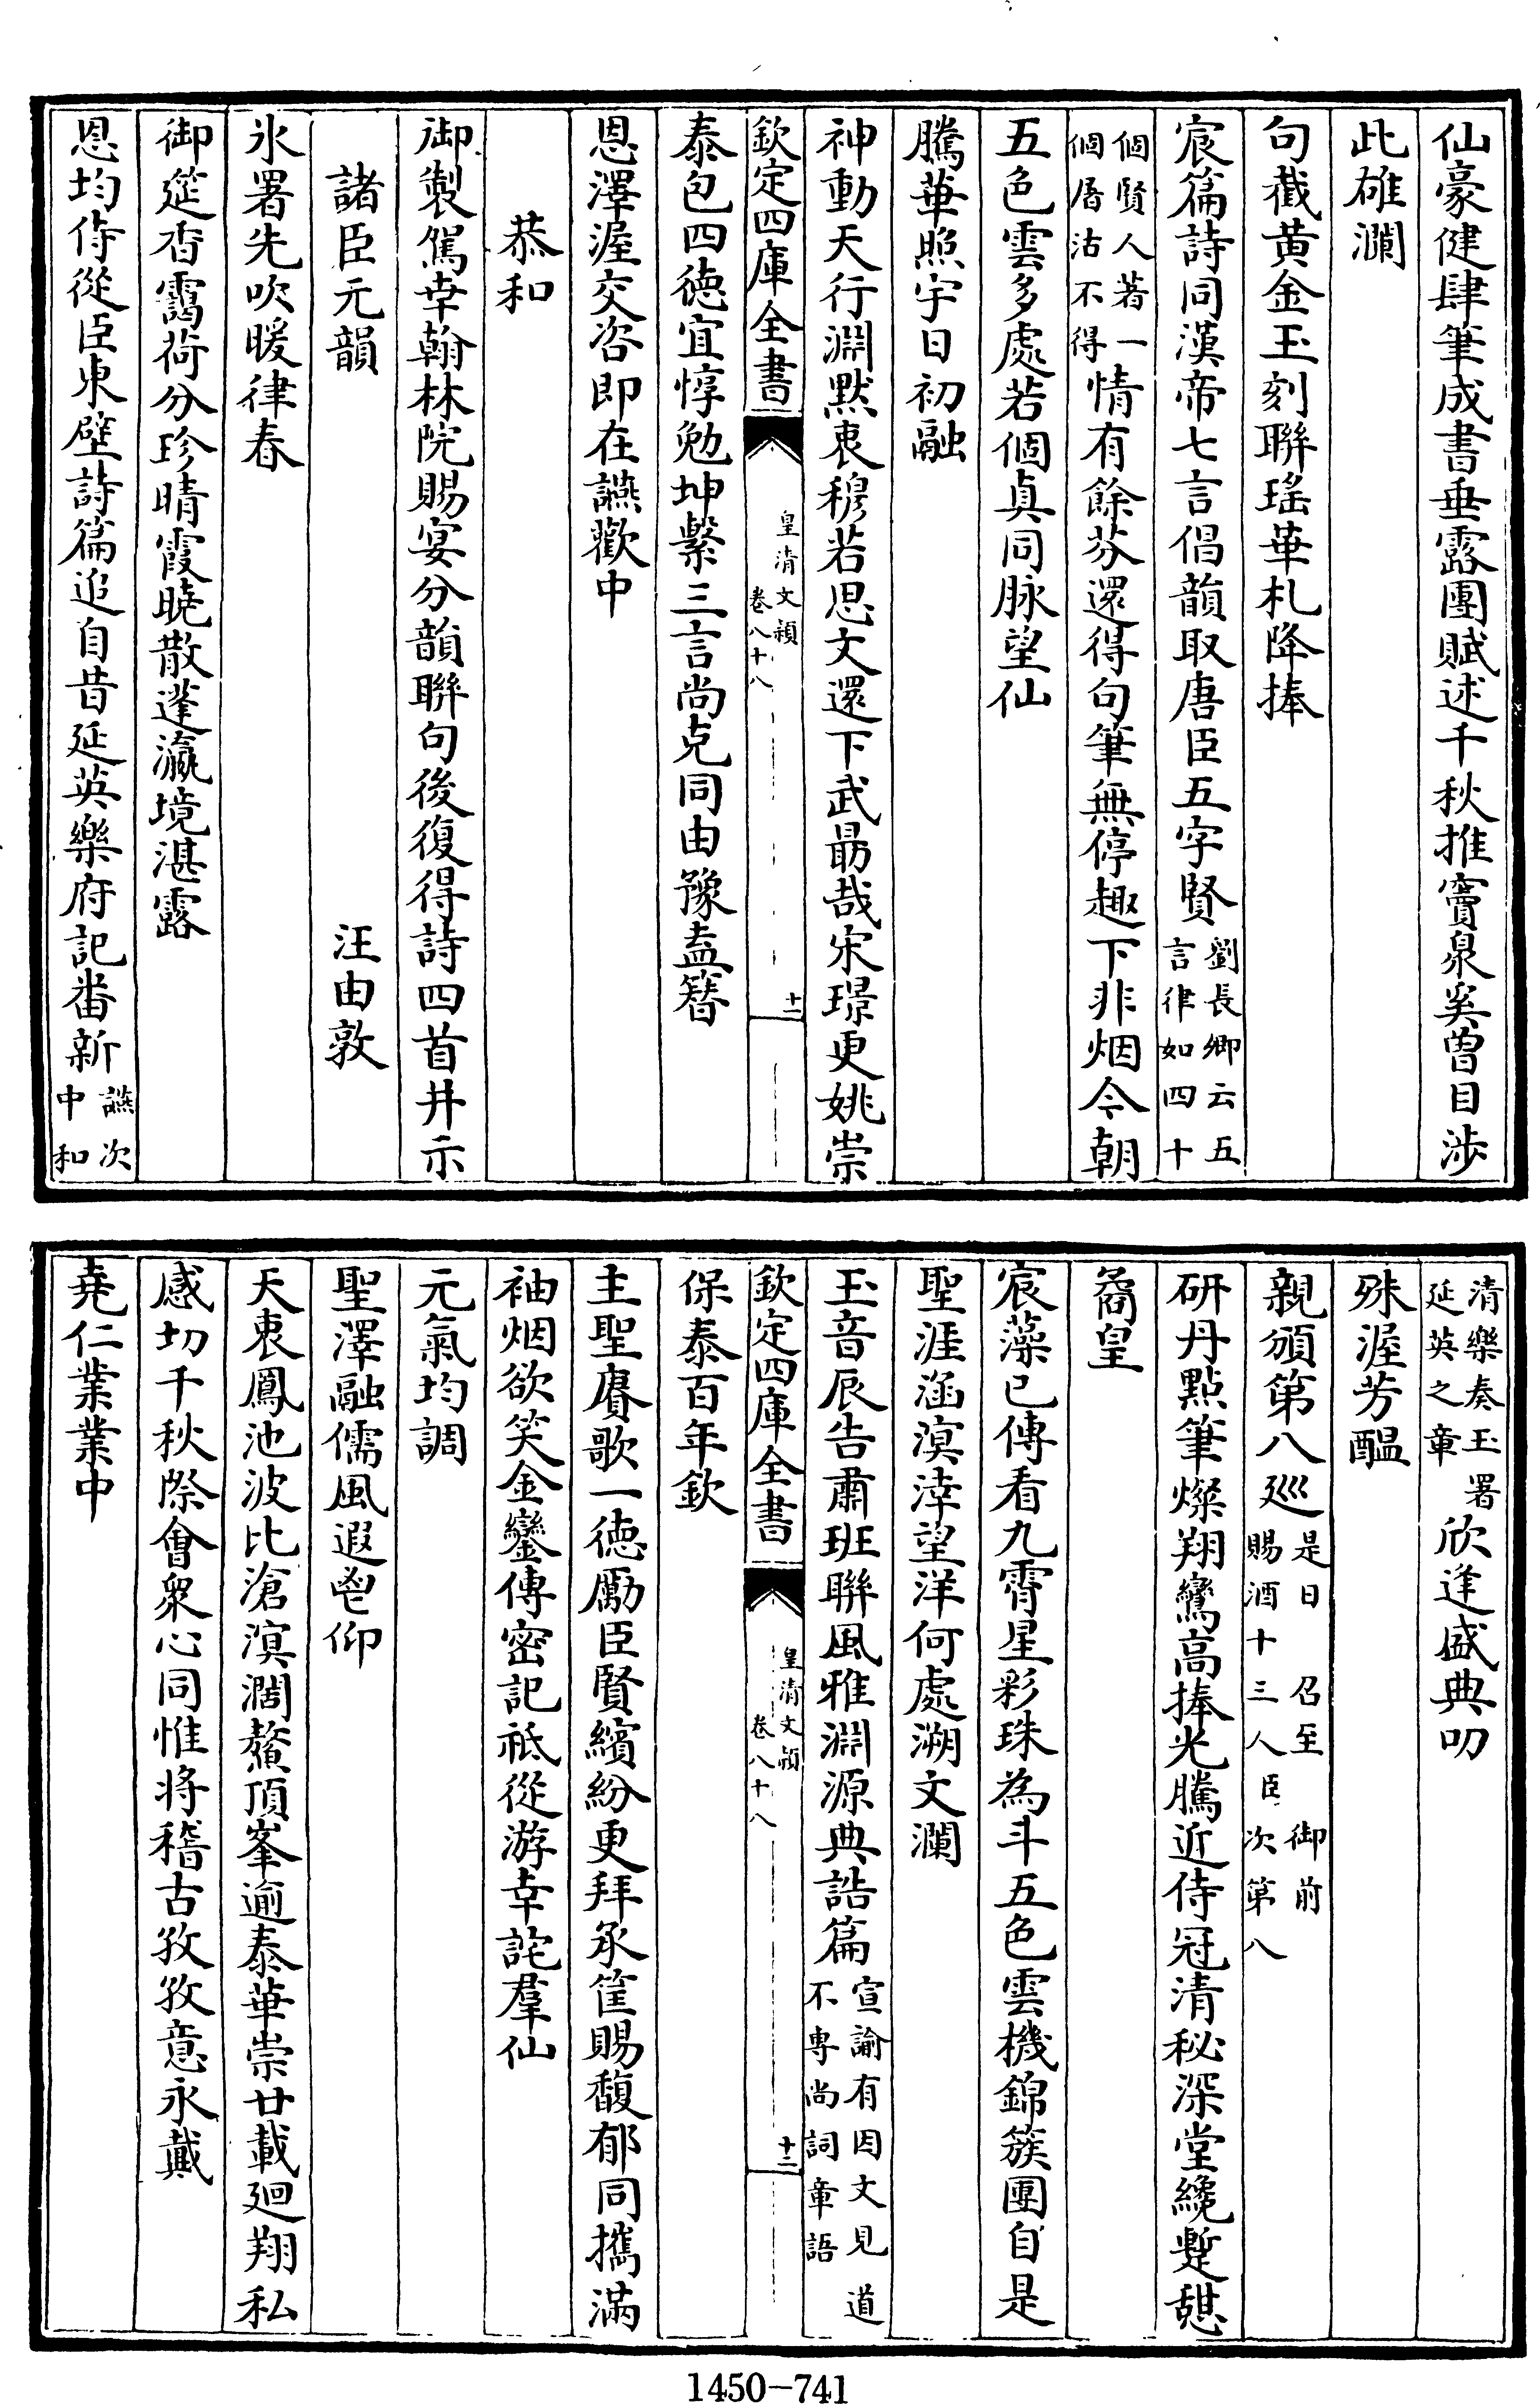 仙豪健肆筆成書垂露團賦述千秋推竇泉奚曽目涉
此雄瀾
句截黄金玉刻聨瑤華札降捧
宸篇詩同漢帝七言倡韻取唐臣五字賢劉長卿云五言律如四十
個賢人著一個屠沽不得情有餘芬還得句筆無停趣下非烟今朝
五色雲多處若個眞同脉望仙
騰華照宇日初融
神動天行淵默衷穆若思文還下武勗哉宋璟更姚崇
欽定四庫全書
皇清文穎
卷八十八
十一
泰包四徳宜惇勉坤繫三言尚克同由豫盍簮
恩澤渥交咨即在讌歡中
恭和
御製駕幸翰林院賜宴分韻聯句後復得詩四首幷示
諸臣元韻 汪由敦
氷署先吹暖律春
御筵香靄荷分珍晴霞曉散蓬瀛境湛露
恩均侍從臣東壁詩篇追自昔延英樂府記番新讌次中和
清樂奏玉署延英之章欣逢盛典叨
殊渥芳醖
親頒第八廵是日召至御前賜酒十三人臣次第八
研丹點筆燦翔鸞高捧光騰近侍冠清秘深堂纔蹔憇
矞皇
宸藻已傳看九霄星彩珠為斗五色雲機錦簇團自是
聖涯涵溟涬望洋何處溯文瀾
玉音辰告肅班聯風雅淵源典誥篇宣諭有因文見道不専尚詞章語
欽定四庫全書
皇清文穎
卷八十八
十二
保泰百年欽
主聖賡歌一徳勵臣賢繽紛更拜承筐賜馥郁同攜滿
袖烟欲笑金鑾傳密記祗從游幸詫羣仙
元氣均調
聖澤融儒風遐鬯仰
天衷鳳池波比滄溟濶鰲頂峯逾泰華崇廿載廻翔私
感切千秋際會衆心同惟将稽古孜孜意永戴
堯仁業業中
1450-741